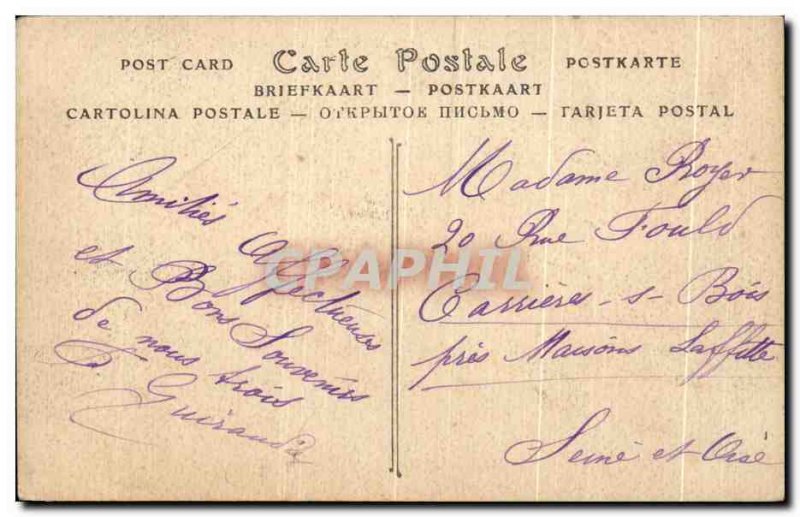 POST CARD Carte Postale POSTKARTE
BRIEFKAART — POSTKAART
CARTOLINA POSTALE — ОТКРЫТОЕ ПИСЬМО — TARJETA POSTAL
Amitiés Affectueuses
et Bons Souvenirs
de nous trois
Madame Royer
20 Rue Fould
Carrières-s-Bois
près Maisons Laffitte
Seine et Oise
CPAPHIL